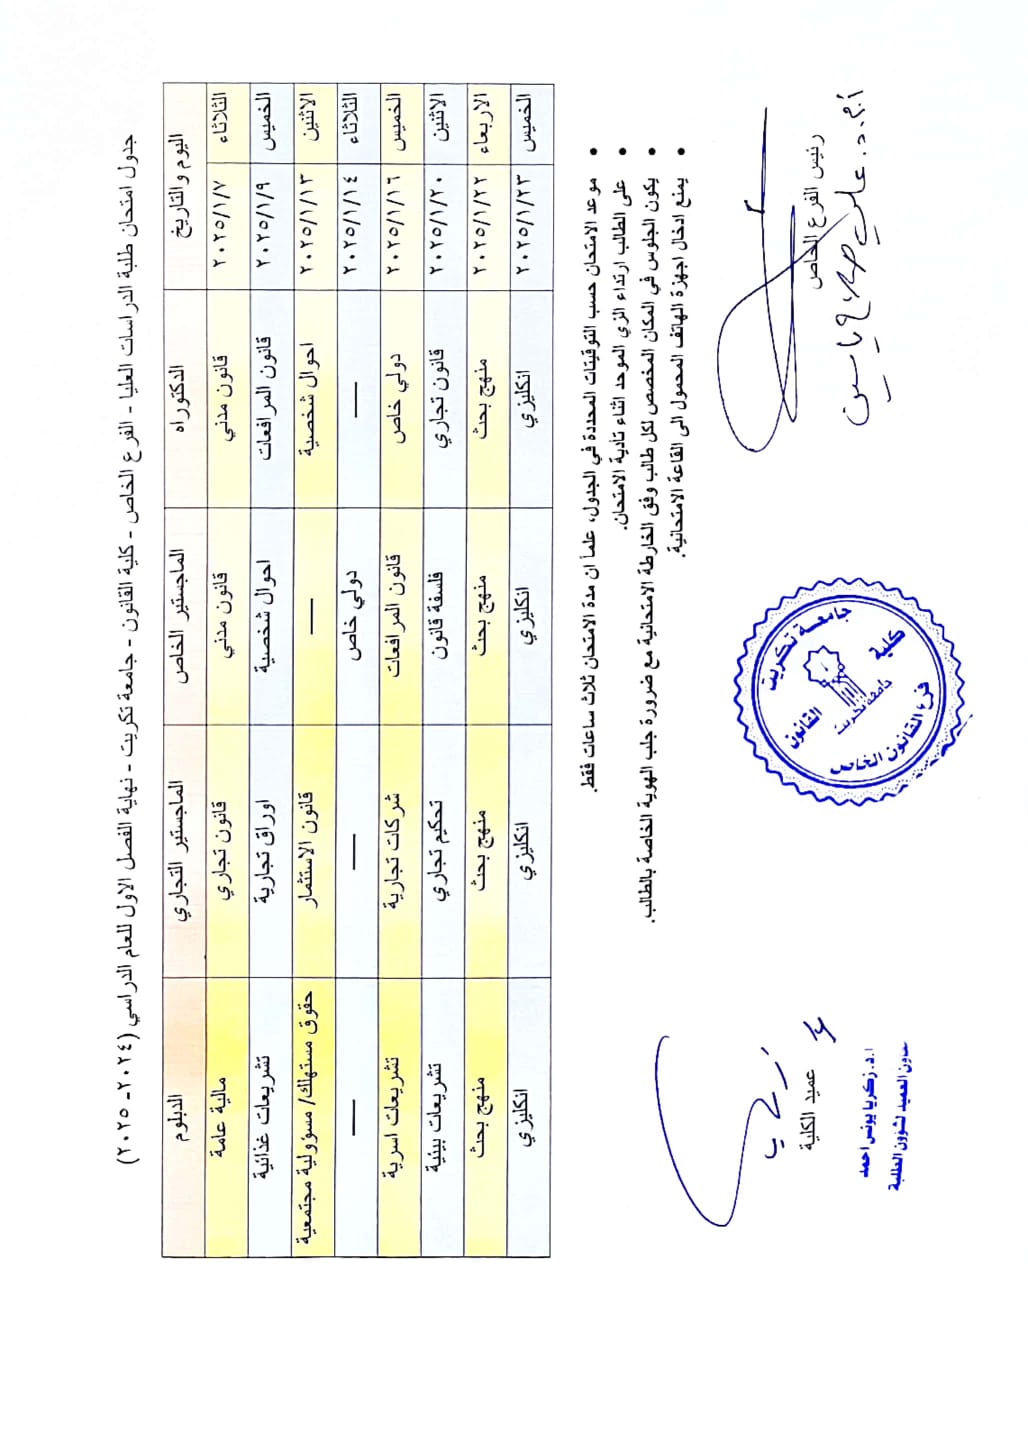 جدول امتحان طلبة الدراسات العليا - الفرع الخاص - كلية القانون - جامعة تكريت - نهاية الفصل الاول للعام الدراسي (٢٠٢٤-٢٠٢٥)
اليوم والتاريخ الدكتوراه الماجستير الخاص الماجستير التجاري الدبلوم
الثلاثاء ٢٠٢٥/١/٧ قانون مدني قانون مدني قانون تجاري مالية عامة
الخميس ٢٠٢٥/١/٩ قانون المرافعات احوال شخصية اوراق تجارية تشريعات غذائية
الاثنين ٢٠٢٥/١/١٣ احوال شخصية — قانون الاستثمار حقوق مستهلك/ مسؤولية مجتمعية
الثلاثاء ٢٠٢٥/١/١٤ — دولي خاص — —
الخميس ٢٠٢٥/١/١٦ دولي خاص قانون المرافعات شركات تجارية تشريعات اسرية
الاثنين ٢٠٢٥/١/٢٠ قانون تجاري فلسفة قانون تحكيم تجاري تشريعات بيئية
الاربعاء ٢٠٢٥/١/٢٢ منهج بحث منهج بحث منهج بحث منهج بحث
الخميس ٢٠٢٥/١/٢٣ انكليزي انكليزي انكليزي انكليزي
• موعد الامتحان حسب التوقيتات المحددة في الجدول، علماً ان مدة الامتحان ثلاث ساعات فقط.
• على الطالب ارتداء الزي الموحد اثناء تأدية الامتحان.
• يكون الجلوس في المكان المخصص لكل طالب وفق الخارطة الامتحانية مع ضرورة جلب الهوية الخاصة بالطالب.
• يمنع ادخال اجهزة الهاتف المحمول الى القاعة الامتحانية.
رئيس الفرع الخاص
أ.م.د. علي
جامعة تكريت
كلية
القانون
جامعة تكريت
فرع القانون الخاص
عميد الكلية
ا.د. زكريا يونس احمد
معاون العميد لشؤون الطلبة